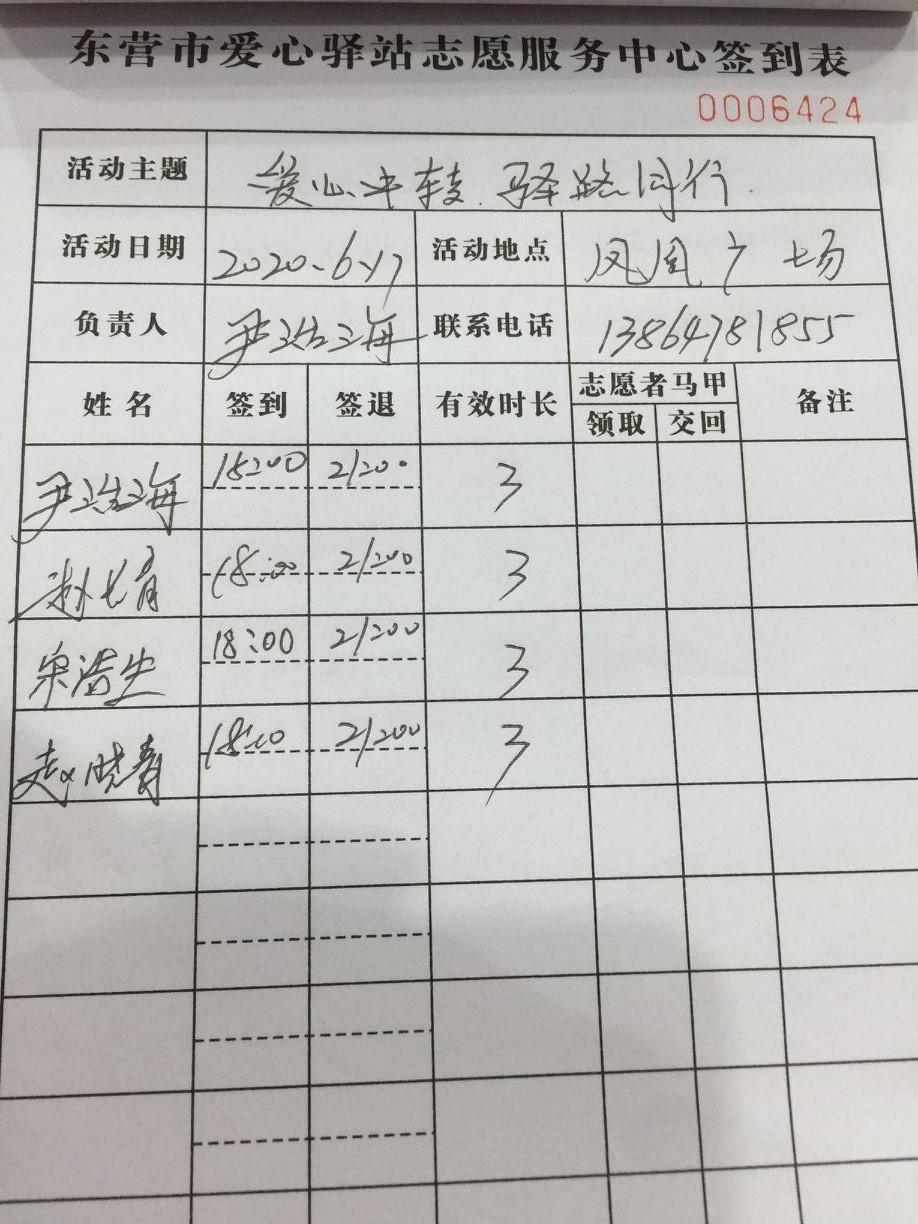 东营市爱心驿站志愿服务中心签到表
0006424
活动主题 爱心中转.驿路同行.
活动日期 2020.6.17 活动地点 凤凰广场
负责人 尹浩海 联系电话 13864781855
姓名 签到 签退 有效时长 志愿者马甲 备注
领取 交回
尹浩海 18:00 21:00 3
18:00 21:00 3
宋浩生 18:00 21:00 3
赵晓青 18:00 21:00 3